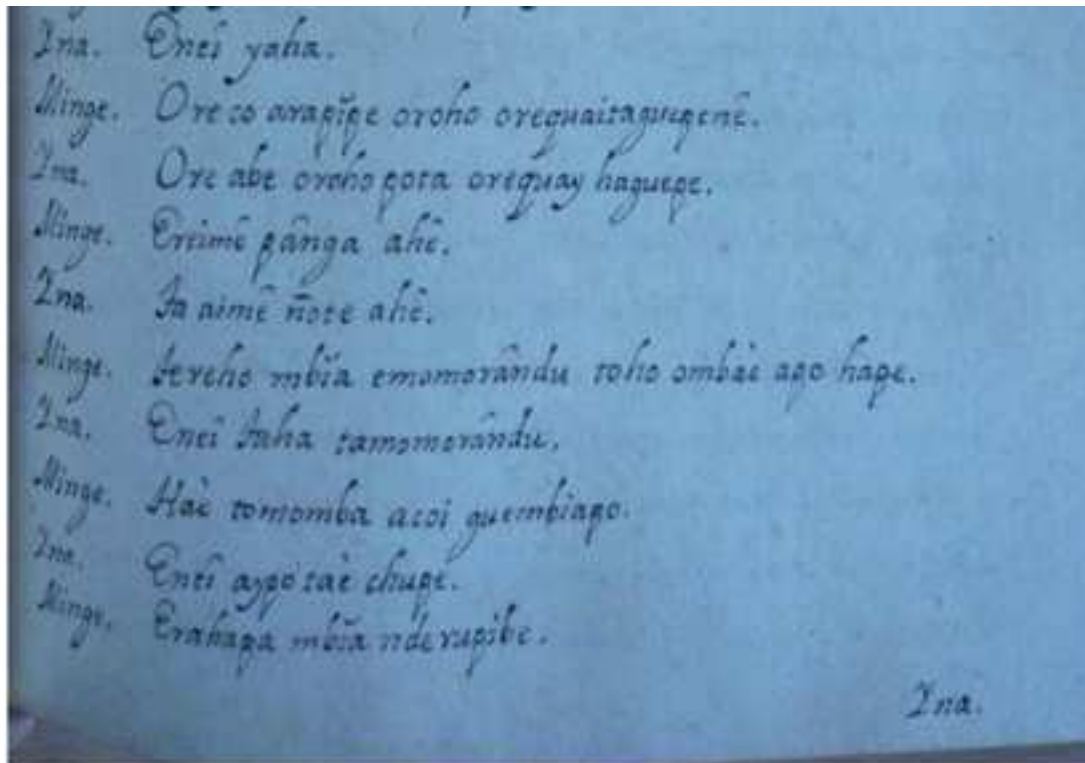 Ina. Enei yaha.
Minge. Ore co arapĭpe oroho orequaitaguepenê.
Ina. Ore abe oroho pota orequay haguepe.
Minge. Ereimê pânga ahê.
Ina. Ta aimê ñote ahê.
Minge. Tereho mbĭa emomorându toho ombàe apo hape.
Ina. Eneî taha tamomorându.
Minge. Haè tomomba acoi guembiapo.
Ina. Eneî aypo taè chupe.
Minge. Erahapa mbĭa nderupibe.
Ina.